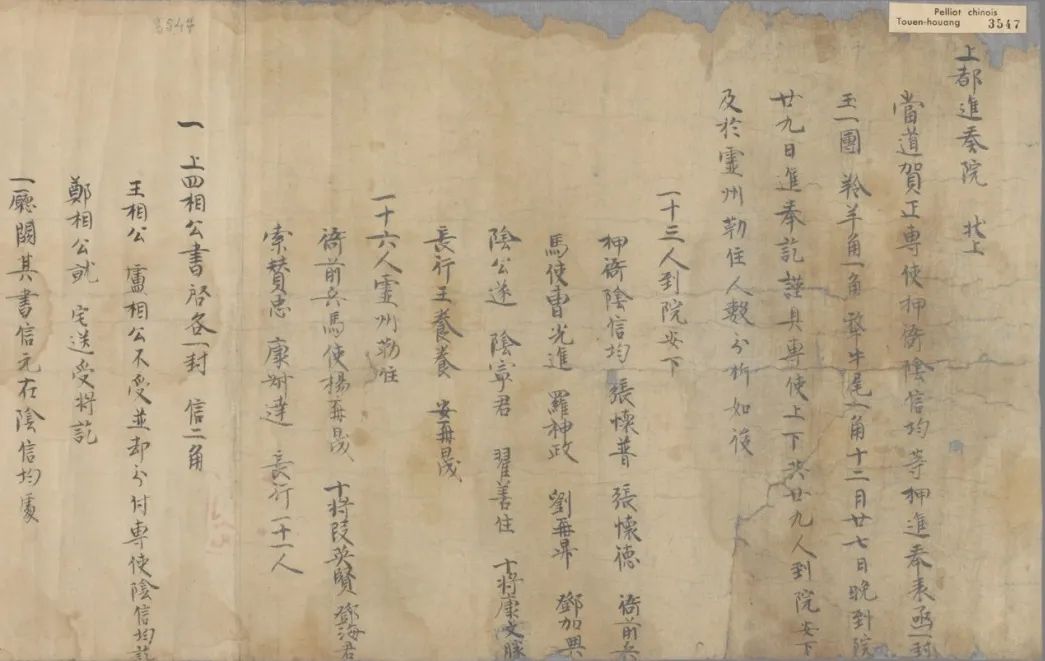 Pelliot chinois
Touen-houang 3547
3547
上都進奏院 狀上
當道賀正専使押衙陰信均等押進奉表函一封
玉一團 羚羊角一角 犛牛尾一角十二月廿七日晚到院
廿九日進奉訖謹具専使上下共廿九人到院安下
及於靈州勒住人數分析如後
一十三人到院安下
押衙陰信均 張懷普 張懷德 衙前兵
馬使曹光進 羅神政 劉再昇 鄧加興
陰公遂 陰寧君 翟善住 十將康文勝
長行王養養 安再晟
一十六人靈州勒住
衙前兵馬使楊再晟 十將段英賢 鄧海君
索賛忠 康叔達 長行一十一人
一 上四相公書啓各一封 信二角
王相公 盧相公不受並却分付専使陰信均訖
鄭相公就 宅送受將訖
一廳闕其書信元在陰信均處